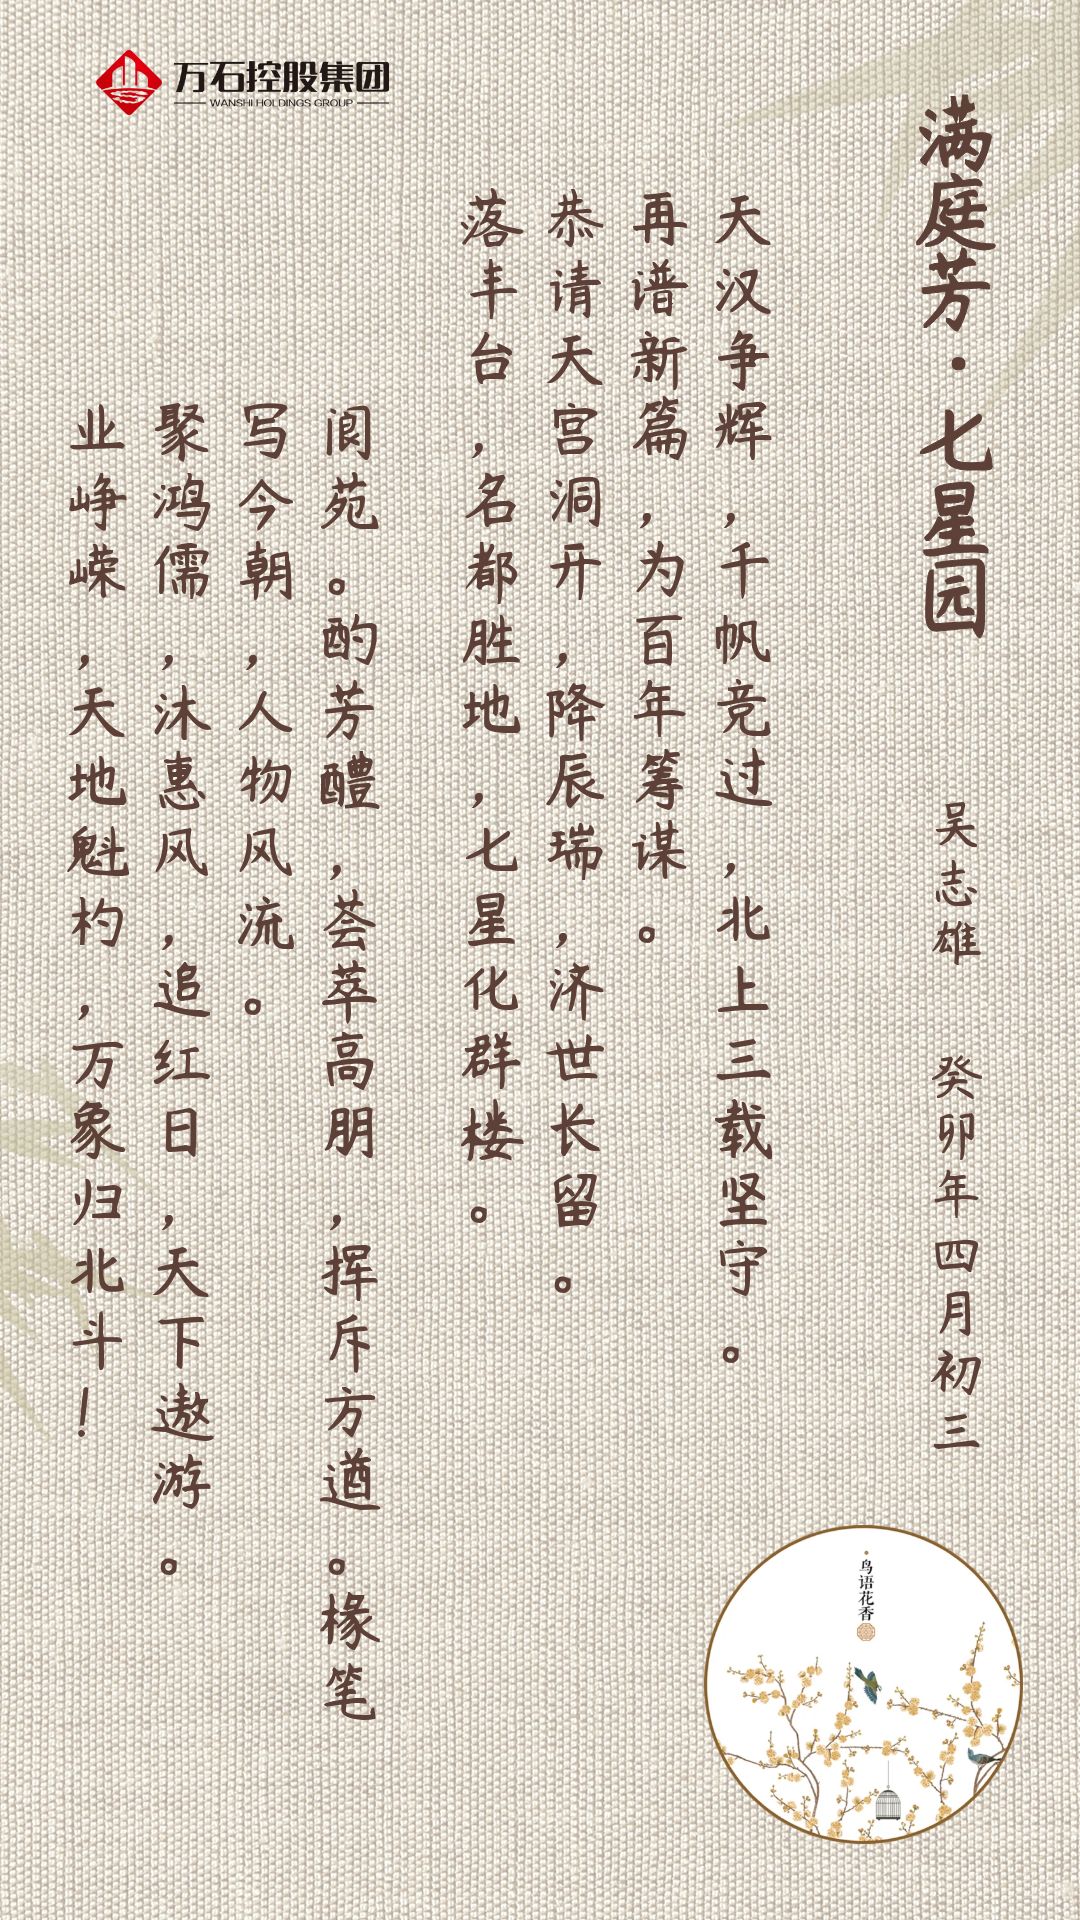 万石控股集团
WANSHI HOLDINGS GROUP
满庭芳·七星园
吴志雄 癸卯年四月初三
天汉争辉，千帆竞过，北上三载坚守。
再谱新篇，为百年筹谋。
恭请天宫洞开，降辰瑞，济世长留。
落丰台，名都胜地，七星化群楼。
阆苑。酌芳醴，荟萃高朋，挥斥方遒。椽笔
写今朝，人物风流。
聚鸿儒，沐惠风，追红日，天下遨游。
业峥嵘，天地魁杓，万象归北斗！
鸟语花香